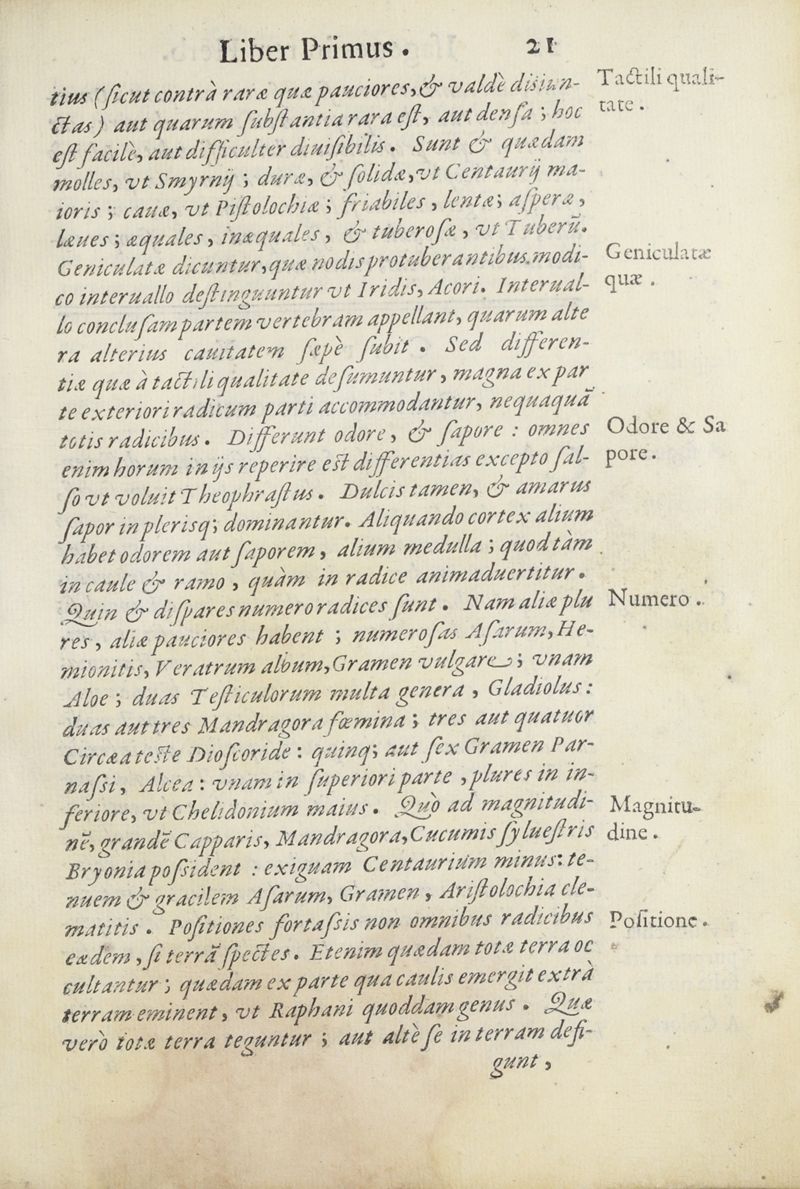 Liber Primus .
21
tius (ſicut contrà raræ quæ pauciores, & valdè disiun-
ctas) aut quarum ſubſtantia rara eſt, aut denſa ; hoc
eſt facilè, aut difficulter diuiſibilis . Sunt & quædam
molles, vt Smyrnij ; duræ, & ſolidæ, vt Centaurij ma-
ioris ; cauæ, vt Piſtolochiæ ; friabiles , lentæ ; aſperæ ,
læues ; æquales , inæquales , & tuberoſæ , vt Tuberū.
Geniculatæ dicuntur, quæ nodis protuberantibus, modi-
co interuallo deſtinguuntur vt Iridis, Acori. Interual-
lo concluſam partem vertebram appellant, quarum alte
ra alterius cauitatem ſæpè ſubit . Sed differen-
tiæ quæ à tactili qualitate deſumuntur , magna ex par
te exteriori radicum parti accommodantur, nequaquā
totis radicibus . Differunt odore , & ſapore : omnes
enim horum in ijs reperire eſt differentias excepto ſal-
ſo vt voluit Theophraſtus . Dulcis tamen, & amarus
ſapor in plerisq; dominantur. Aliquando cortex alium
habet odorem aut ſaporem , alium medulla ; quod tàm
in caule & ramo , quàm in radice animaduertitur .
Quin & diſpares numero radices ſunt . Nam aliæ plu
res , aliæ pauciores habent ; numeroſas Aſarum, He-
mionitis, Veratrum album, Gramen vulgare ; vnam
Aloe ; duas Teſticulorum multa genera , Gladiolus :
duas aut tres Mandragora fœmina ; tres aut quatuor
Circæa teſte Dioſcoride : quinq; aut ſex Gramen Par-
naſsi , Alcea : vnam in ſuperiori parte , plures in in-
feriore, vt Chelidonium maius . Quo ad magnitudi-
nē, grandē Capparis, Mandragora, Cucumis ſylueſtris
Bryonia poſsident : exiguam Centaurium minus : te-
nuem & gracilem Aſarum, Gramen , Ariſtolochia cle-
matitis . Poſitiones fortaſsis non omnibus radicibus
eædem , ſi terrā ſpectes . Etenim quædam totæ terra oc
cultantur ; quædam ex parte qua caulis emergit extrà
terram eminent , vt Raphani quoddam genus . Quæ
verò totæ terra teguntur ; aut altè ſe in terram defi-
gunt ,
Tactili quali-
tate .
Geniculatæ
quæ .
Odore & Sa
pore .
Numero .
Magnitu-
dine .
Poſitione .